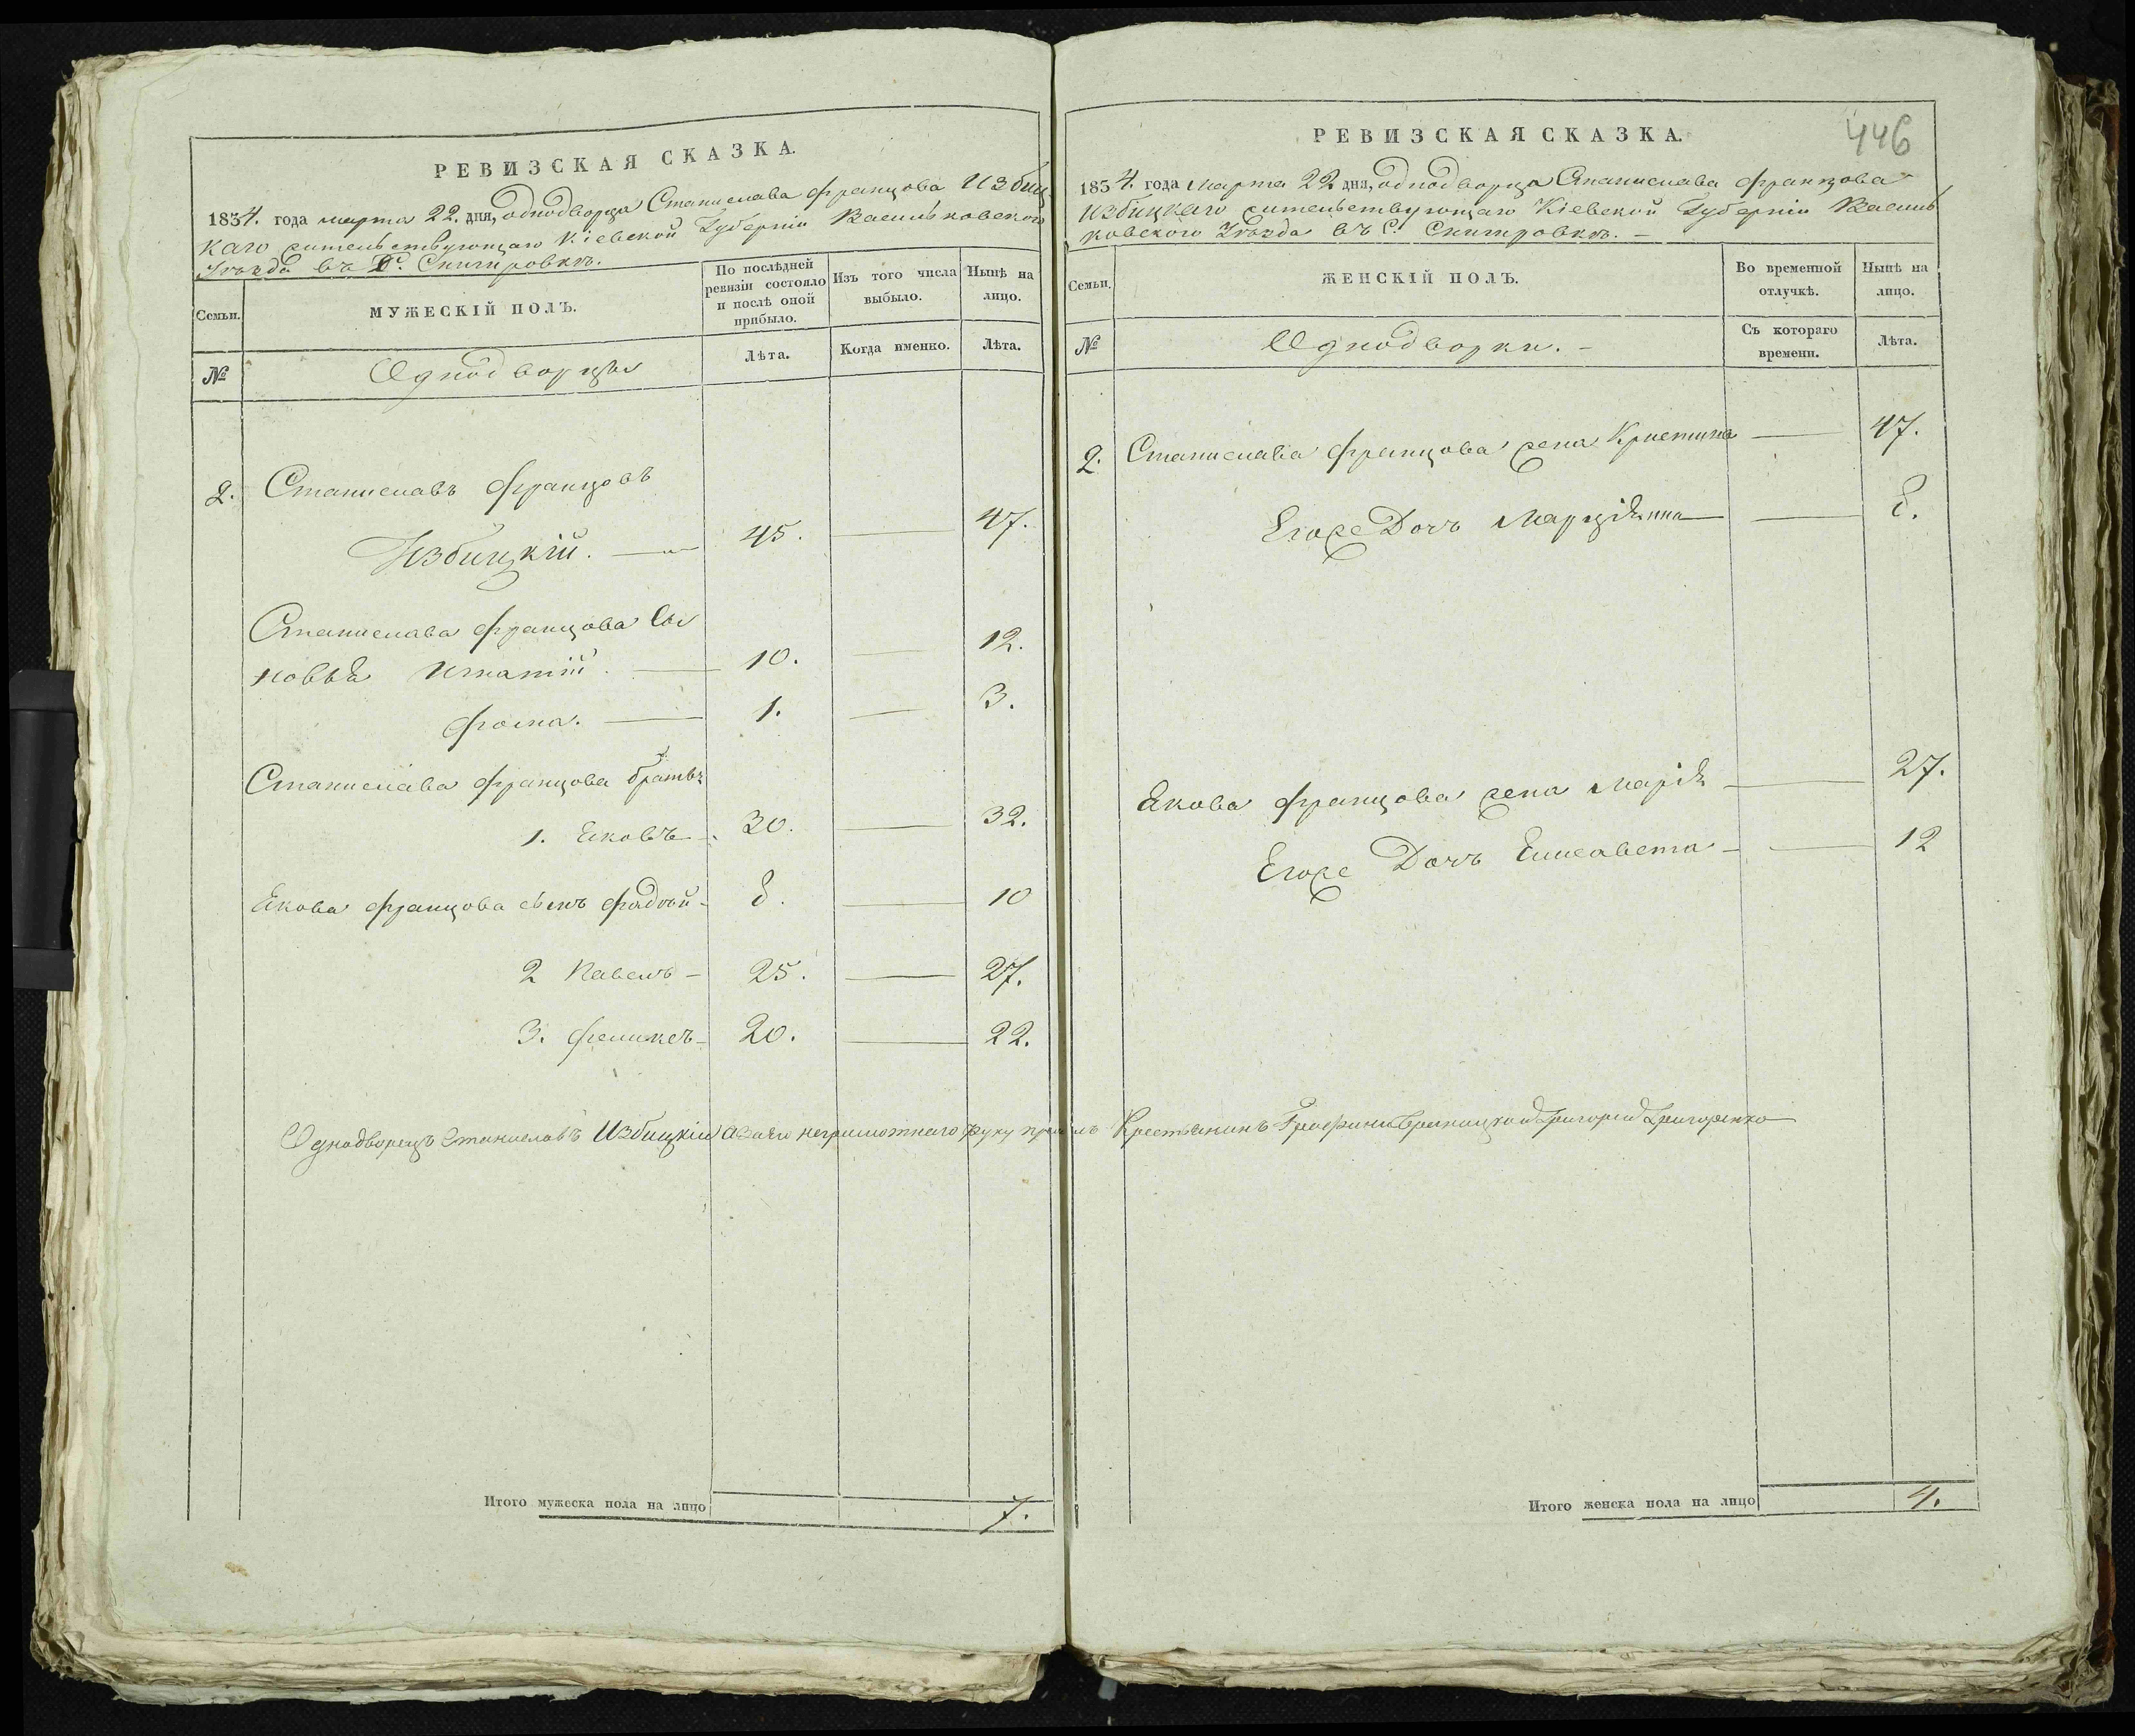 РЕВИЗСКАЯ СКАЗКА.
1834. года марта 22. дня, однодворца Станислава Францова Избиц
каго жительствующаго Кіевской Губерніи Васильковского
Уѣзда въ С. Снитровкѣ.
Семьи.
МУЖЕСКІЙ ПОЛЪ.
По послѣдней ревизіи состояло и послѣ оной прибыло.
Изъ того числа выбыло.
Нынѣ на лицо.
№
Однодворцы
Лѣта.
Когда именно.
Лѣта.
2. Станиславъ Францовъ
Избицкій. 45. 47.
Станислава Францова Сы
новья Игнатій. 10. 12.
Фома. 1. 3.
Станислава Францова братья
1. Яковъ 30. 32.
Якова Францова сынъ Фадѣй 8. 10
2 Павелъ 25. 27.
3. Феликсъ 20. 22.
Однодворецъ Станиславъ Избицкій а за его неграмотнаго руку
Итого мужеска пола на лицо 7.
446
РЕВИЗСКАЯ СКАЗКА.
1834. года марта 22 дня, однодворца Станислава Францова
Избицкаго жительствующаго Кіевской Губерніи Василь
ковского Уѣзда въ С. Снитровкѣ.
Семьи.
ЖЕНСКІЙ ПОЛЪ.
Во временной отлучкѣ.
Нынѣ на лицо.
№
Однодворки.
Съ котораго времени.
Лѣта.
2. Станислава Францова жена Кристина 47.
Егоже Дочь Марціянна 8.
Якова Францова жена Марія 27.
Егоже Дочь Елисавета 12
Крестьянинъ Графини Браницкой Григорій Григоренко
Итого женска пола на лицо 4.